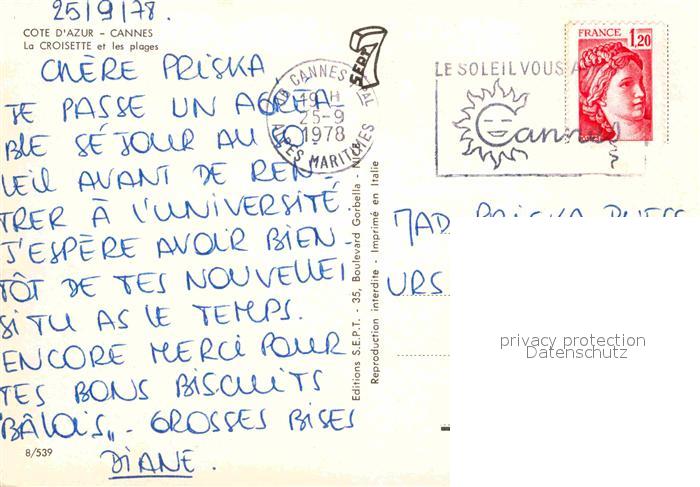 25/9/78.
COTE D'AZUR - CANNES
La CROISETTE et les plages
CHÈRE PRISKA,
JE PASSE UN AGRÉA-
BLE SÉJOUR AU SO-
LEIL AVANT DE REN-
TRER À L'UNIVERSITÉ.
J'ESPÈRE AVOIR BIEN-
TÔT DE TES NOUVELLES
SI TU AS LE TEMPS.
ENCORE MERCI POUR
TES BONS BISCUITS
"BÂLOIS" - GROSSES BISES
DIANE.
8/539
SEPT
CANNES
19 H
25-9
1978
ALPES MARITIMES
Editions S.E.P.T. - 35, Boulevard Gorbella - Nice
Reproduction interdite - Imprimé en Italie
LE SOLEIL VOUS A
Cannes
FRANCE 1,20
MAD PRISKA
URS
privacy protection
Datenschutz